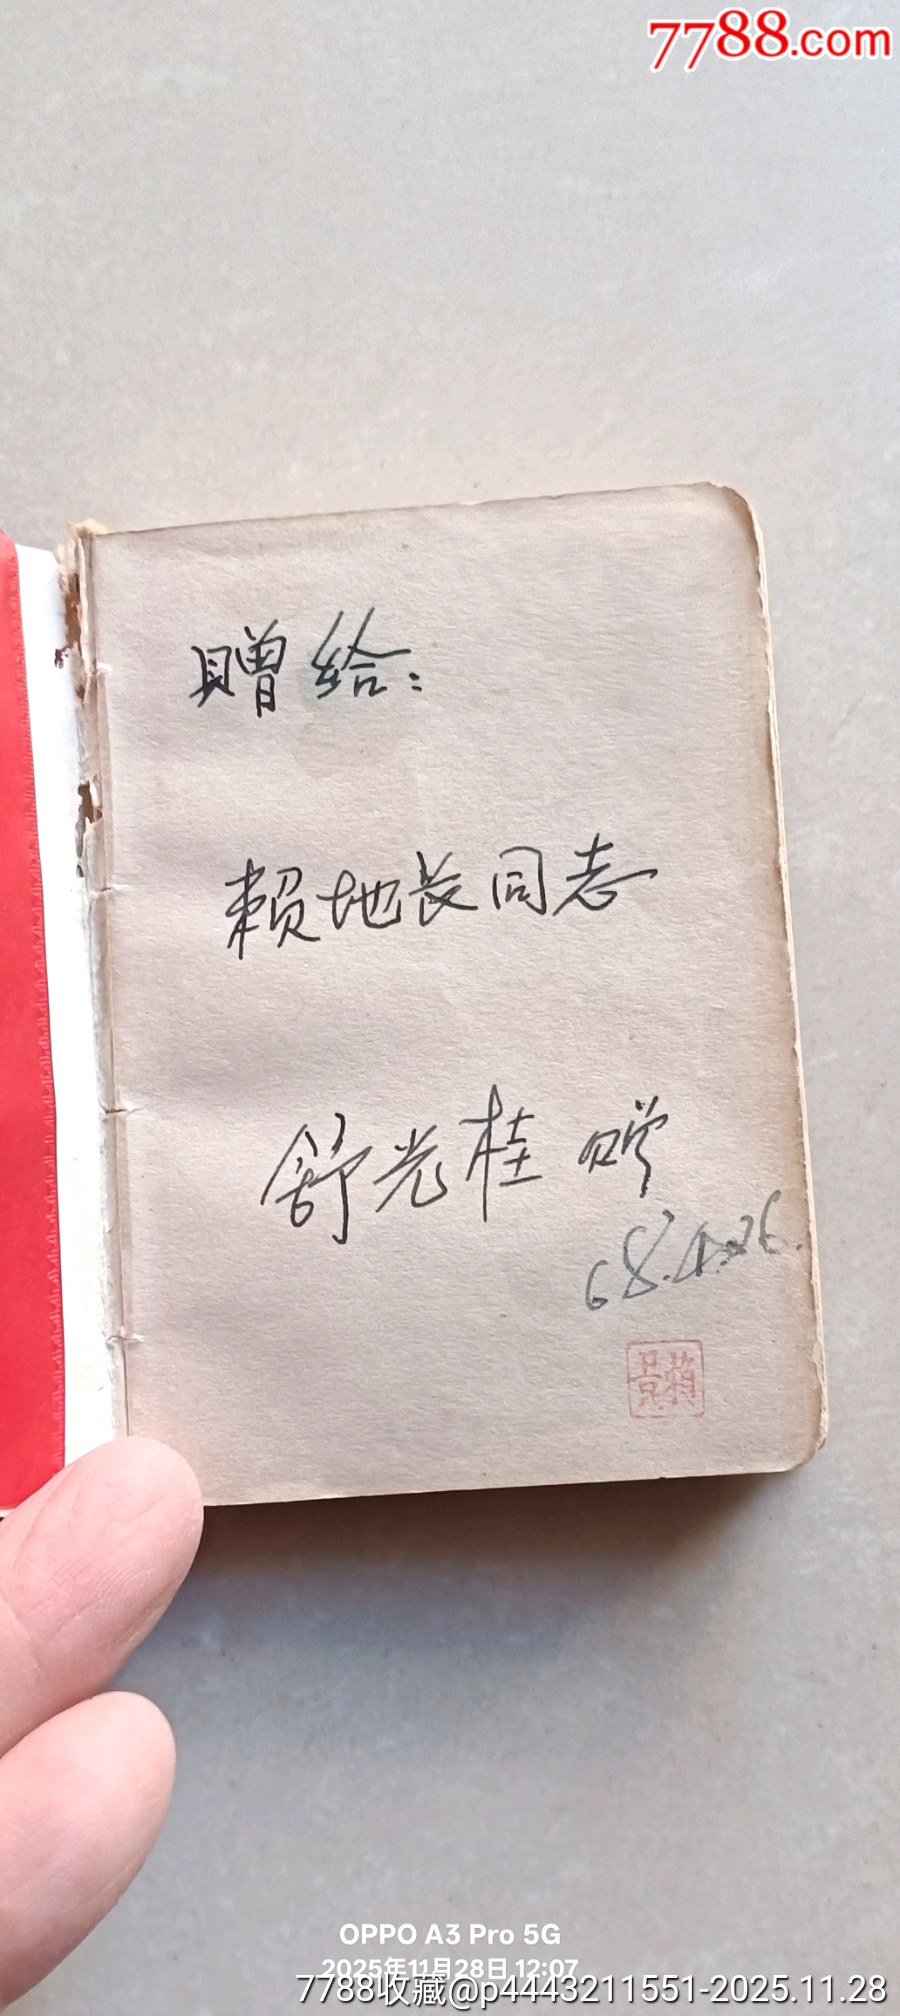 7788.com
赠给：
赖地长同志
舒光桂 赠
68.4.26.
OPPO A3 Pro 5G
2025年11月28日 12:07
7788收藏@p4443211551-2025.11.28